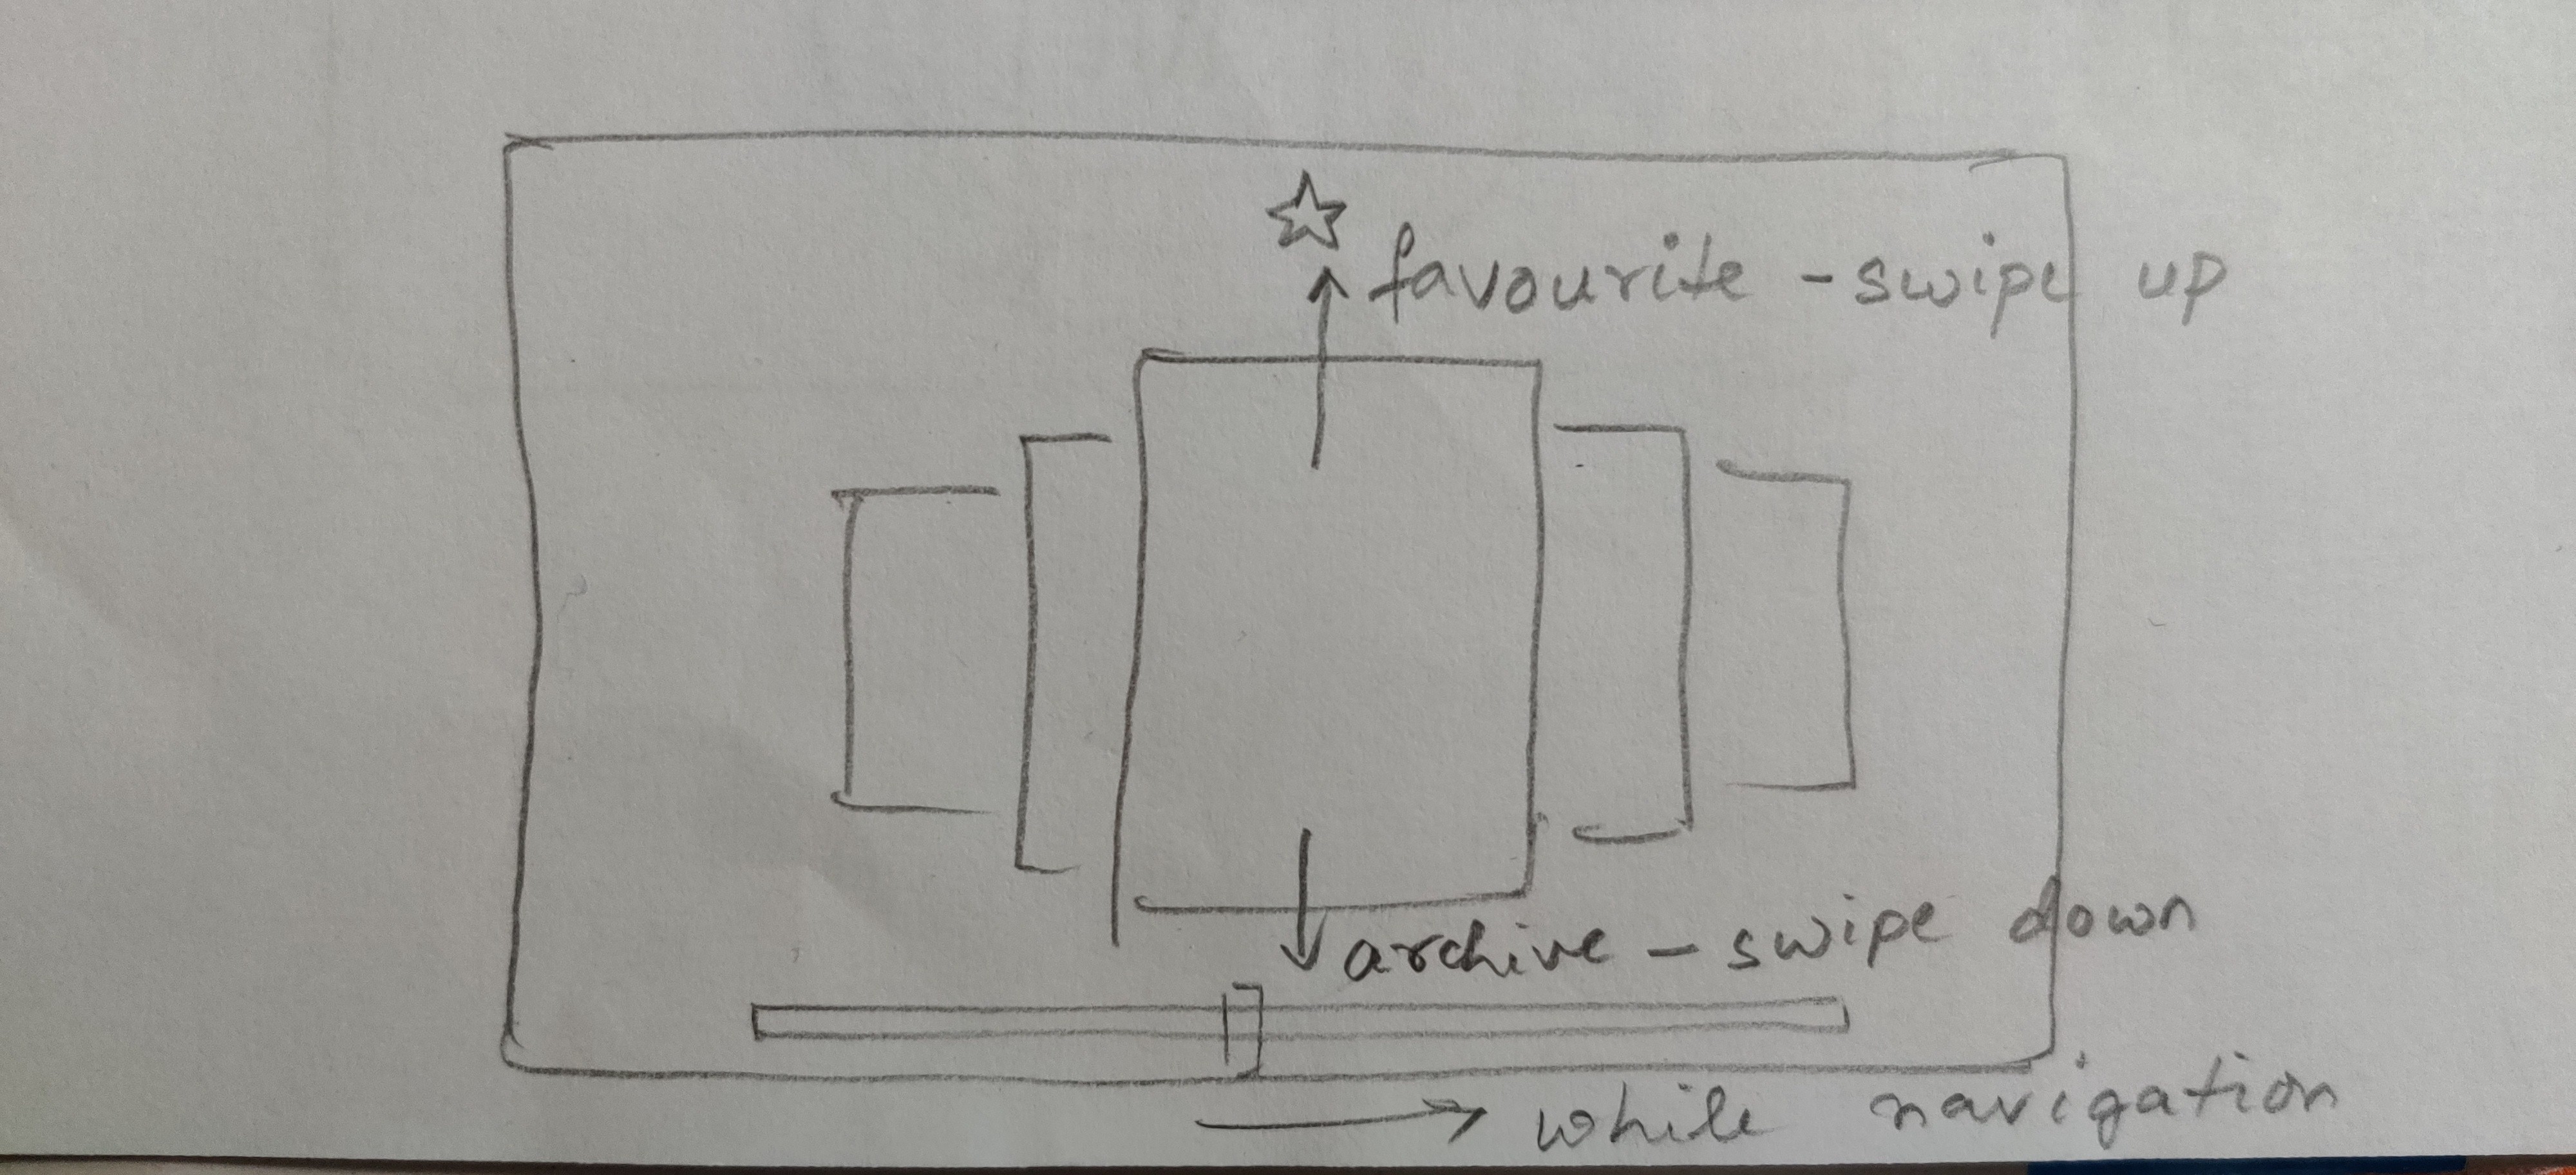 favourite - swipe up
archive - swipe down
while navigation